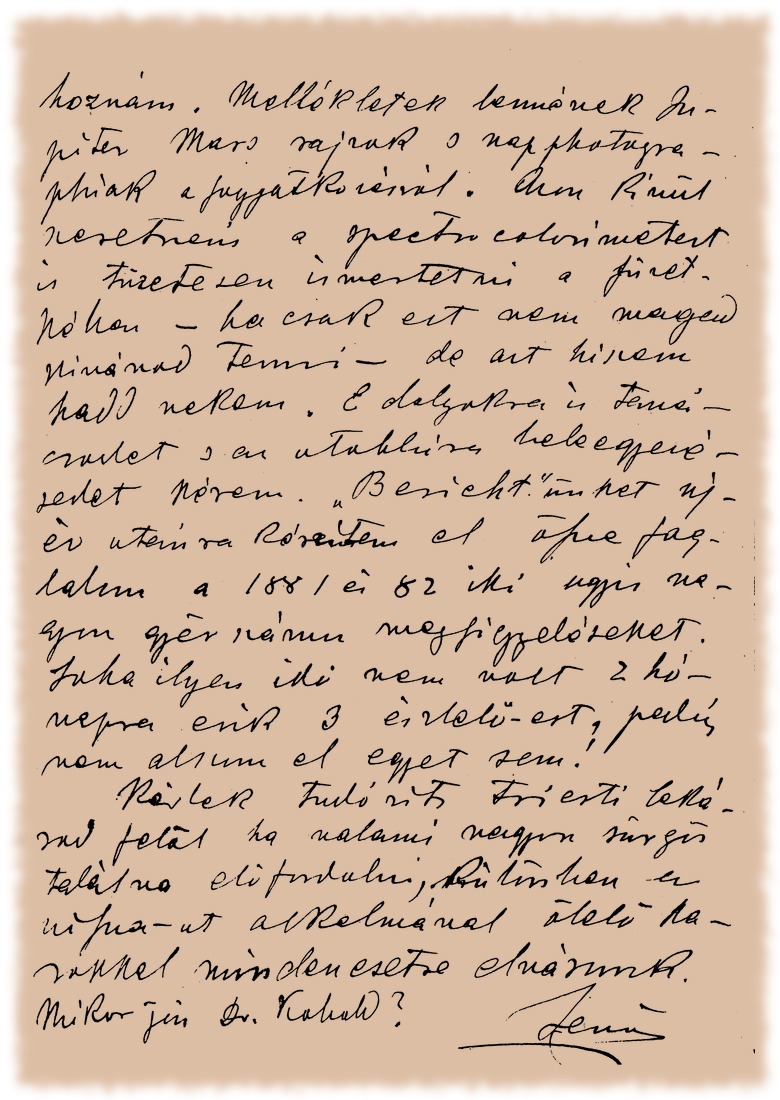 hoznám. Mellékletek lennének Ju-
piter Mars rajzok s napphotogra-
phiák a foggatkozásról. Azon kívül
szeretném a spectrocolorimetert
is tüzetesen ismertetni a füzet-
kében – ha csak ezt nem magad
kívánod tenni – de azt hiszem
hadd nekem. E dolgokra is taná-
csodat s az utóbbira beleegyezé-
sedet kérem. „Bericht"ünket uj-
év utánra készítem el össze fog-
lalom a 1881 és 82 iki ugyis na-
gyon gyér számu megfigyeléseket.
Soha ilyen idő nem volt 2 hó-
napra esik 3 észlelő-est, pedig
nem alszom el egyet sem!
Kérlek tudósíts Triesti laká-
sod felől ha valami nagyon sürgős
találna előfordulni, különben az
vissza-ut alkalmával ölelő ka-
rokkal mindenesetre elvárunk.
Mikor jön Dr. Kobold?
Jenő